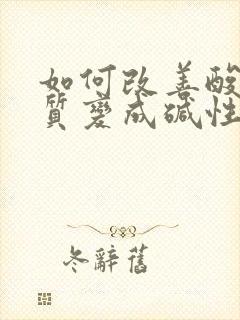 如何改善酸
質變成碱性
冬辭舊